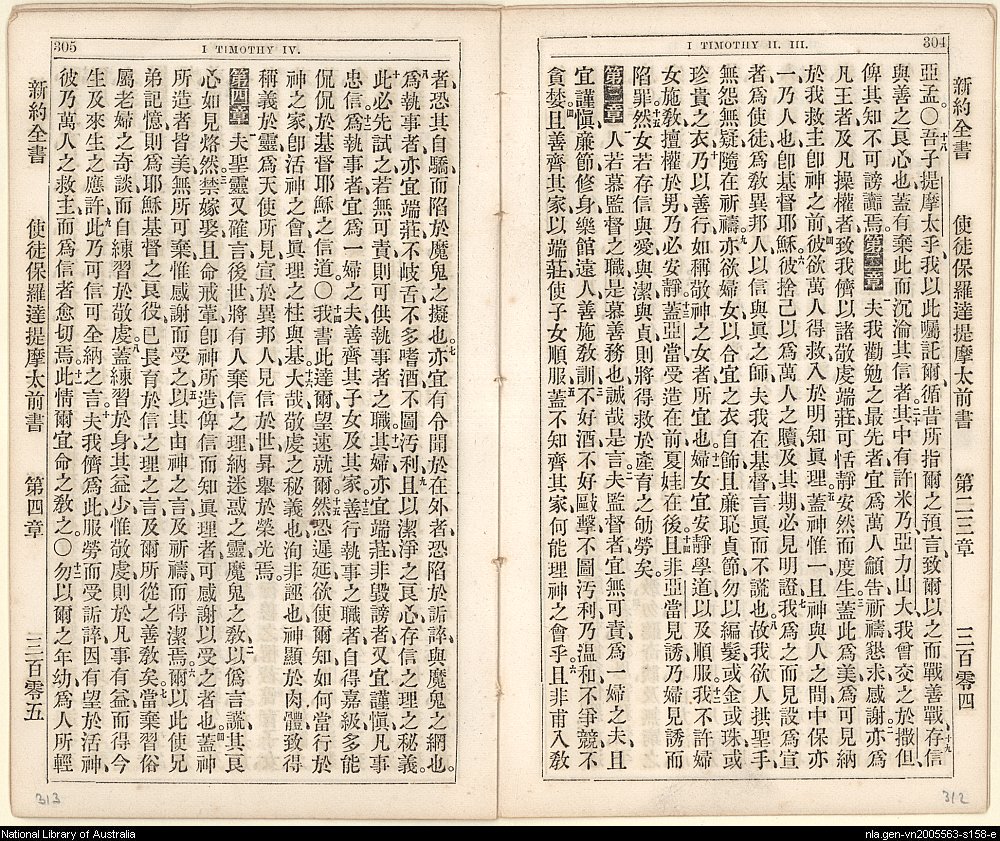 304
I TIMOTHY II. III.
新約全書　使徒保羅達提摩太前書　第二三章　三百零四
亞孟。〇十八吾子提摩太乎、我以此囑託爾、循昔所指爾之預言、致爾以之而戰善戰、十九存信
與善之良心也、蓋有棄此而沉淪其信者、二十其中有許米乃、亞力山大、我曾交之於撒但、
俾其知不可謗讟焉。第二章　夫我勸勉之最先者、宜為萬人籲告、祈禱、懇求、感謝、二亦為
凡王者、及凡操權者、致我儕以諸敬虔端莊、可恬靜安然而度生、三蓋此為美、為可見納
於我救主卽神之前、四彼欲萬人得救、入於明知眞理、五蓋神惟一、且神與人之間中保亦
一、乃人也、卽基督耶穌、六彼捨己以為萬人之贖、及其期必見明證、七我為之而見設為宣
者、為使徒、為教異邦人以信與眞之師、夫我在基督言眞而不謊也、八故我欲人拱聖手、
無怨無疑、隨在祈禱、九亦欲婦女以合宜之衣自飾、且廉恥貞節、勿以編髮、或金、或珠、或
珍貴之衣、十乃以善行、如稱敬神之女者所宜也、十一婦女宜安靜學道、以及順服、十二我不許婦
女施教擅權於男、乃必安靜、十三蓋亞當受造在前、夏娃在後、十四且非亞當見誘、乃婦見誘而
陷罪、十五然女若存信、與愛、與潔、與貞、則將得救於產育之劬勞矣。
第三章　人若慕監督之職、是慕善務也、誠哉是言、二夫監督者、宜無可責、為一婦之夫、且
宜謹愼、廉節、修身、樂館遠人、善施教訓、三不好酒、不好毆擊、不圖污利、乃温和、不爭競、不
貪婪、四且善齊其家、以端莊使子女順服、五蓋不知齊其家、何能理神之會乎、六且非甫入教
312
305
I TIMOTHY IV.
者、恐其自驕而陷於魔鬼之擬也。七亦宜有令聞於在外者、恐陷於詬誶與魔鬼之網也。
八為執事者、亦宜端莊、不岐舌、不多嗜酒、不圖污利、九且以潔淨之良心、存信之理之秘義、
十此必先試之、若無可責、則可供執事者之職、十一其婦亦宜端莊、非毀謗者、又宜謹愼、凡事
忠信、十二為執事者、宜為一婦之夫、善齊其子女、及其家、十三善行執事之職者、自得嘉級、多能
侃侃於基督耶穌之信道。〇十四我書此達爾、望速就爾、十五然恐遲延、欲使爾知如何當行於
神之家、卽活神之會、眞理之柱與基、十六大哉敬虔之秘義也、洵非誣也、神顯於肉體、致得
稱義於靈、為天使所見、宣於異邦人、見信於世、昇舉於榮光焉。
第四章　夫聖靈又確言、後世將有人棄信之理、納迷惑之靈、魔鬼之教、二以僞言謊、其良
心如見烙然、三禁嫁娶、且命戒葷、卽神所造、俾信而知眞理者、可感謝以受之者也、四蓋神
所造者皆美、無所可棄、惟感謝而受之、五以其由神之言及祈禱而得潔焉。六爾以此使兄
弟記憶、則為耶穌基督之良役、已長育於信之理之言、及爾所從之善教矣、七當棄習俗
屬老婦之奇談、而自練習於敬虔、八蓋練習於身、其益少、惟敬虔則於凡事有益、而得今
生及來生之應許、九此乃可信可全納之言、十夫我儕為此服勞、而受詬誶、因有望於活神、
彼乃萬人之救主、而為信者愈切焉。十一此情爾宜命之教之。〇十二勿以爾之年幼、為人所輕
新約全書　使徒保羅達提摩太前書　第四章　三百零五
313
National Library of Australia
nla.gen-vn2005563-s158-e